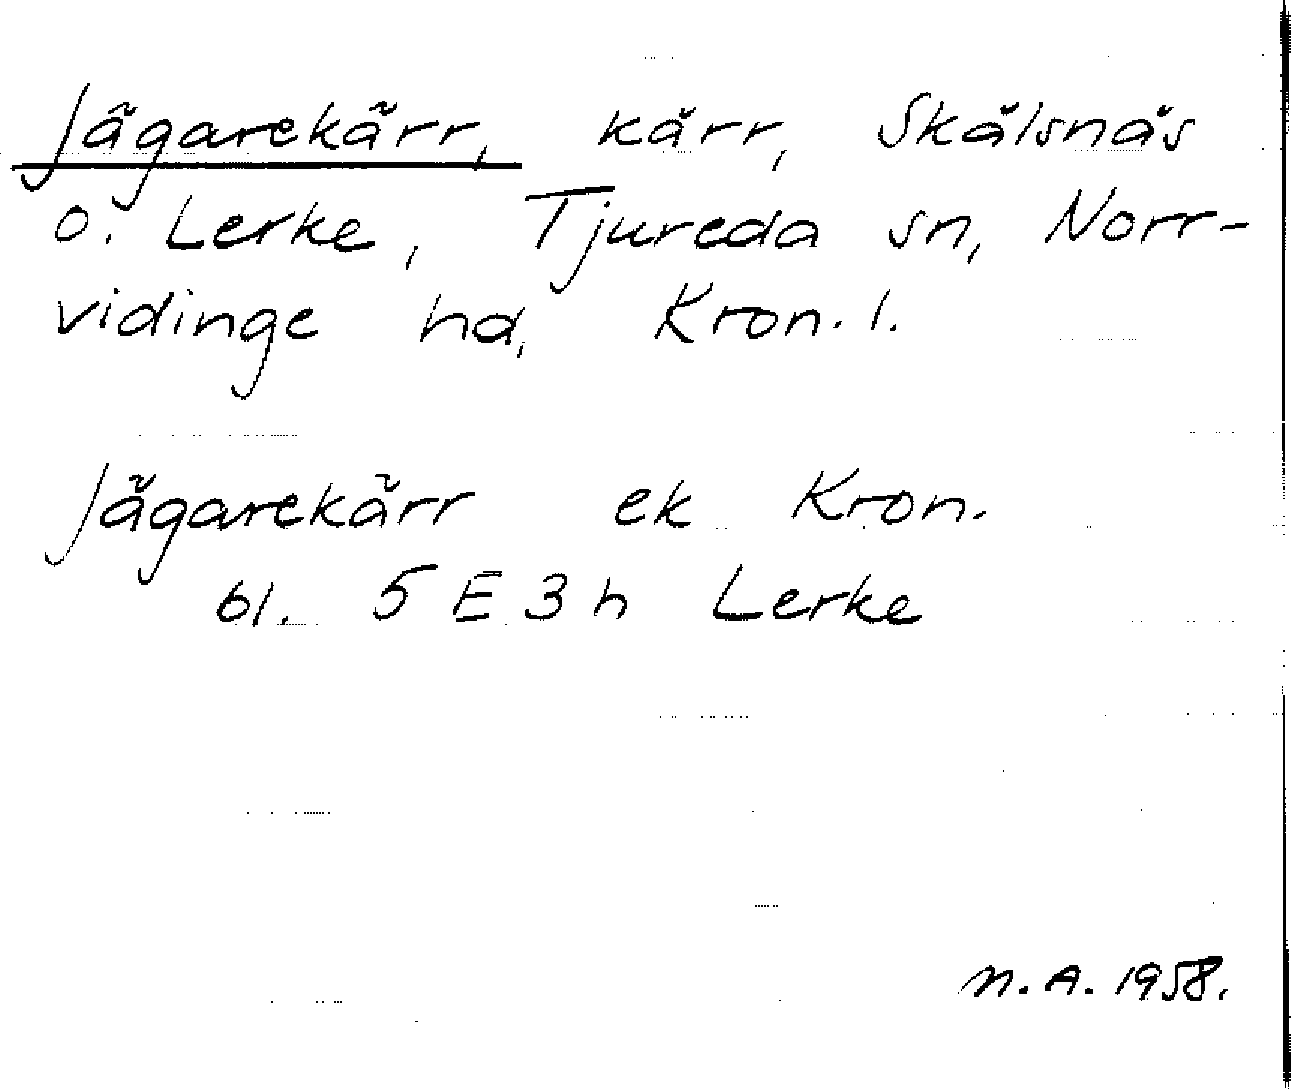 Jägarekärr, kärr, Skälsnäs
o. Lerke, Tjureda sn, Norr-
vidinge hd, Kron. l.
Jägarekärr ek Kron.
bl. 5 E 3 h Lerke
N.A. 1958.